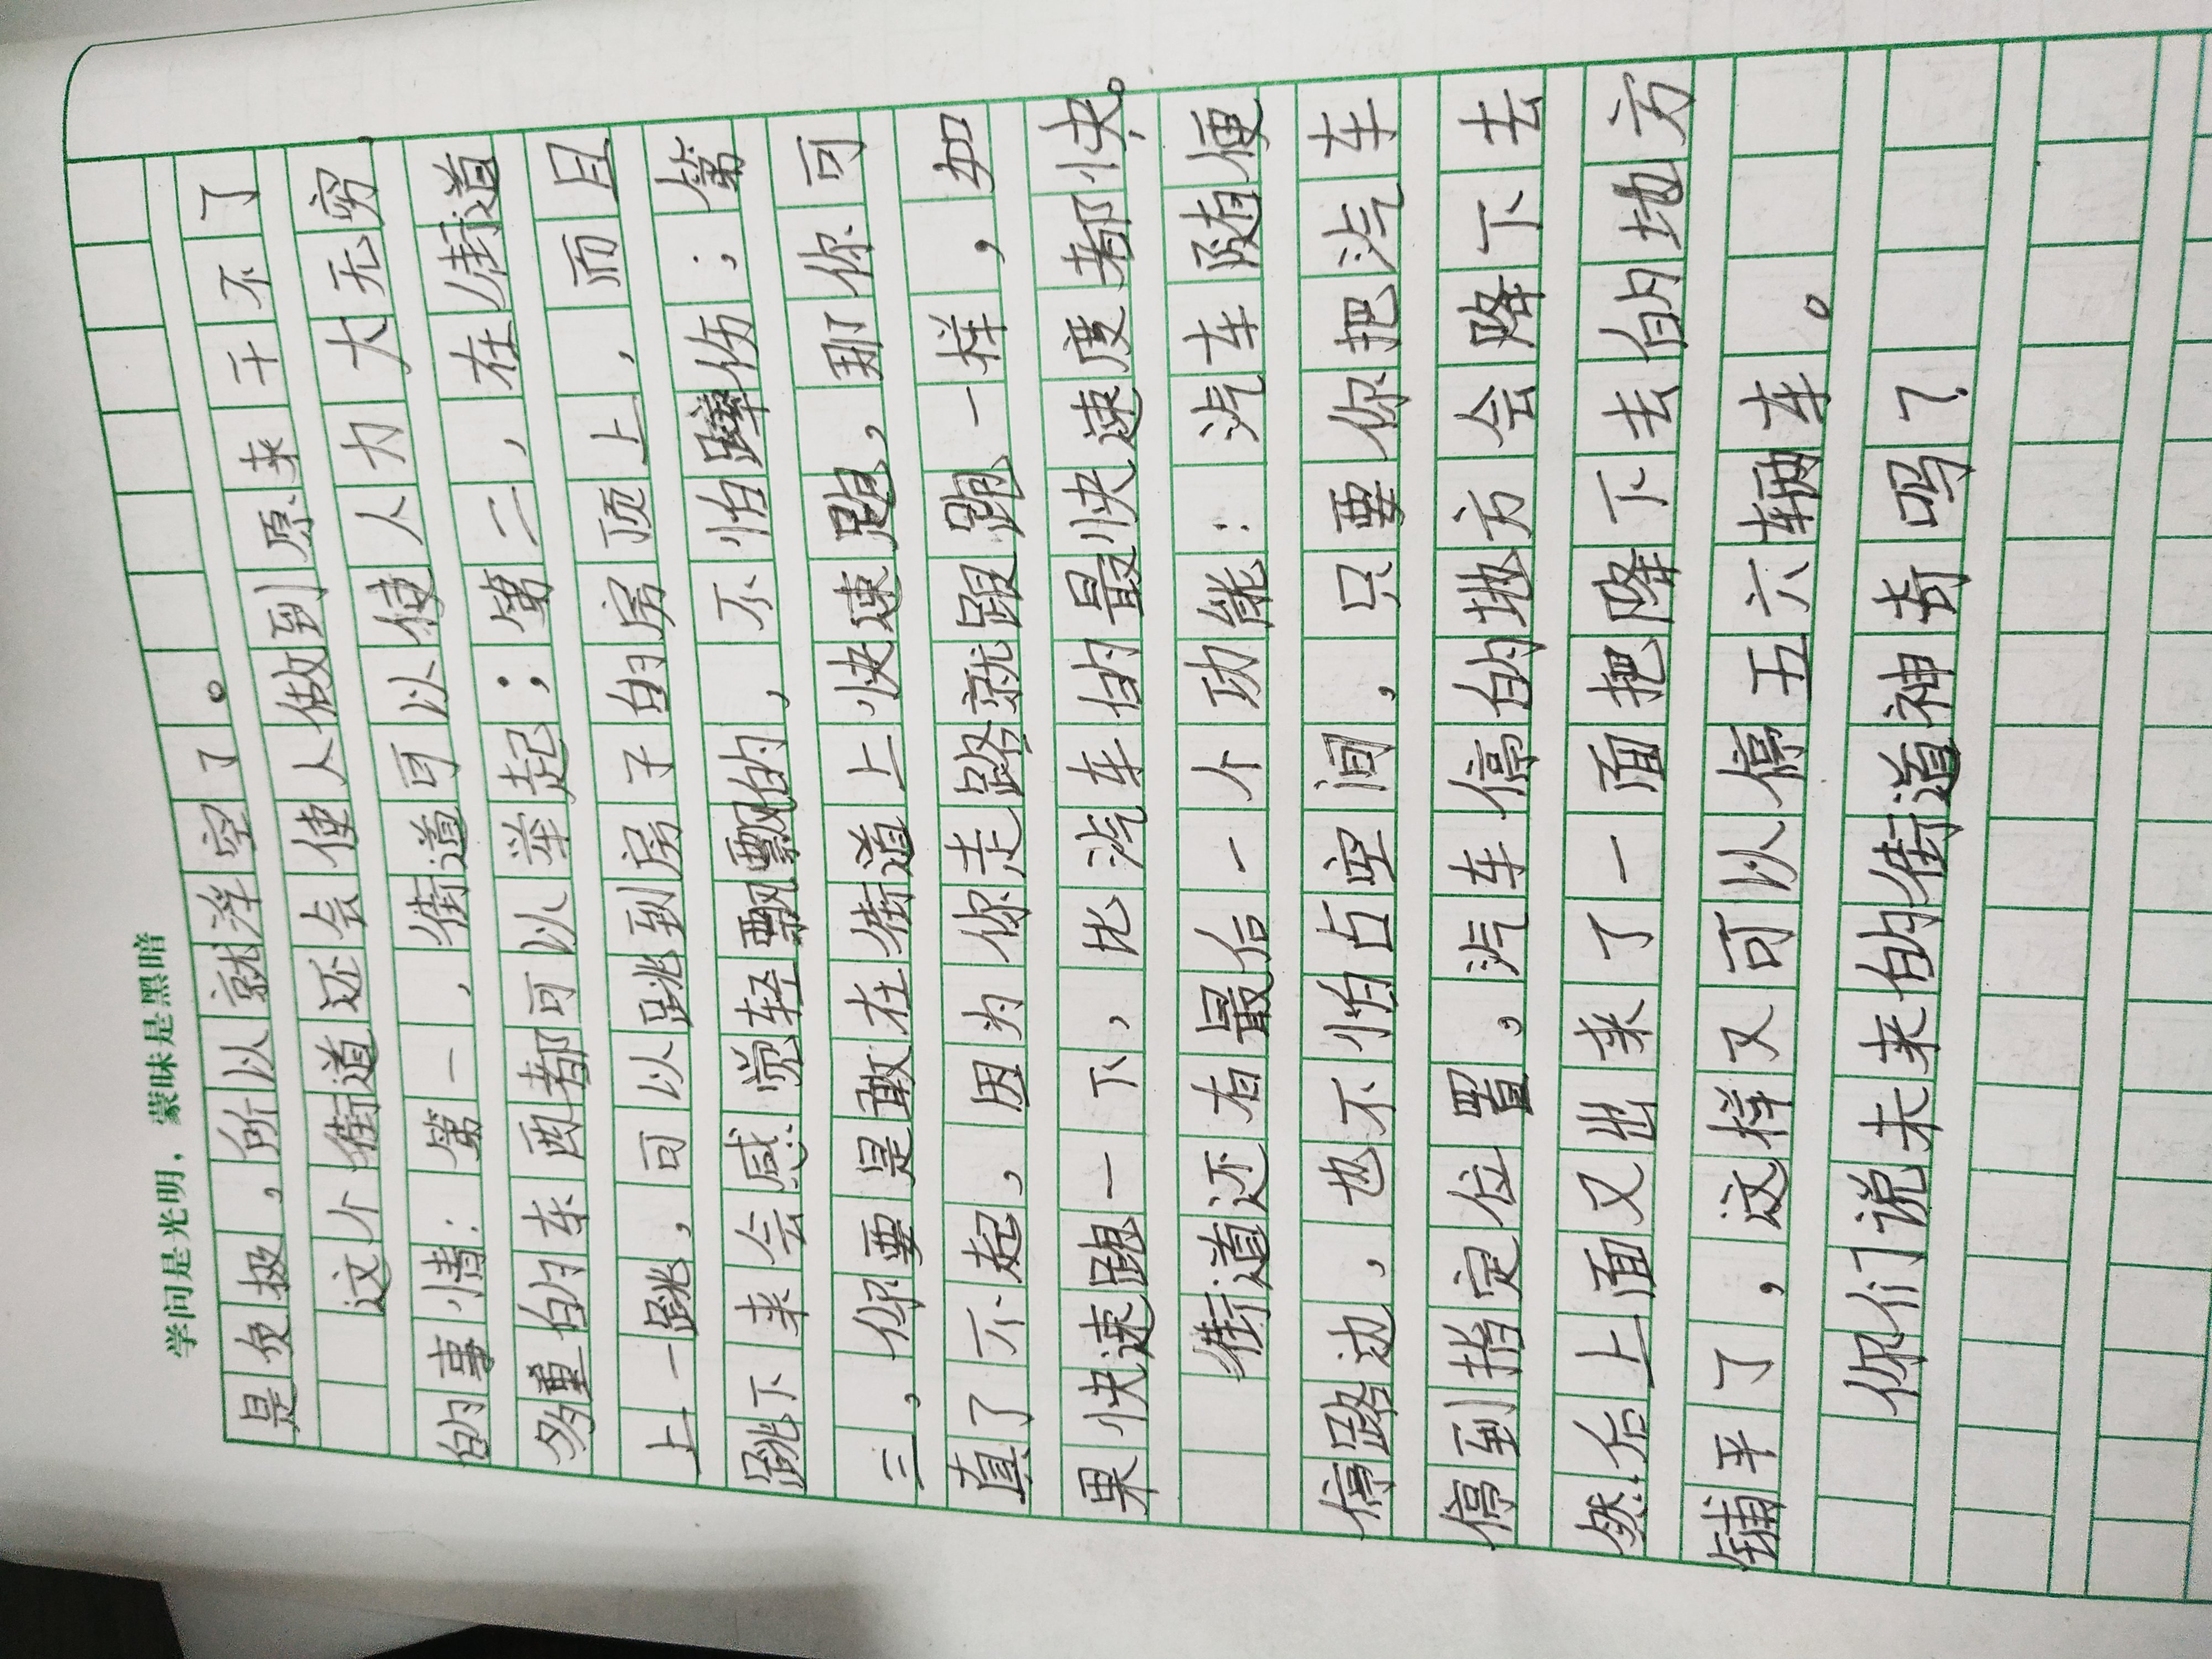 学问是光明，蒙昧是黑暗
是负极，所以就浮空了。
这个街道还会使人做到原来干不了
的事情：第一，街道可以使人力大无穷，
多重的东西都可以举起；第二，在街道
上一跳，可以跳到房子的房顶上，而且
跳下来会感觉轻飘飘的，不怕蹿伤；第
三，你要是敢在街道上快速跑，那你可
真了不起，因为你走路就跟跑一样，如
果快速跑一下，比汽车的最快速度都快。
街道还有最后一个功能：汽车随便
停路边，也不怕占空间，只要你把汽车
停到指定位置，汽车停的地方会降下去
然后上面又出来了一面把降下去的地方
铺平了，这样又可以停五六辆车。
你们说未来的街道神奇吗？